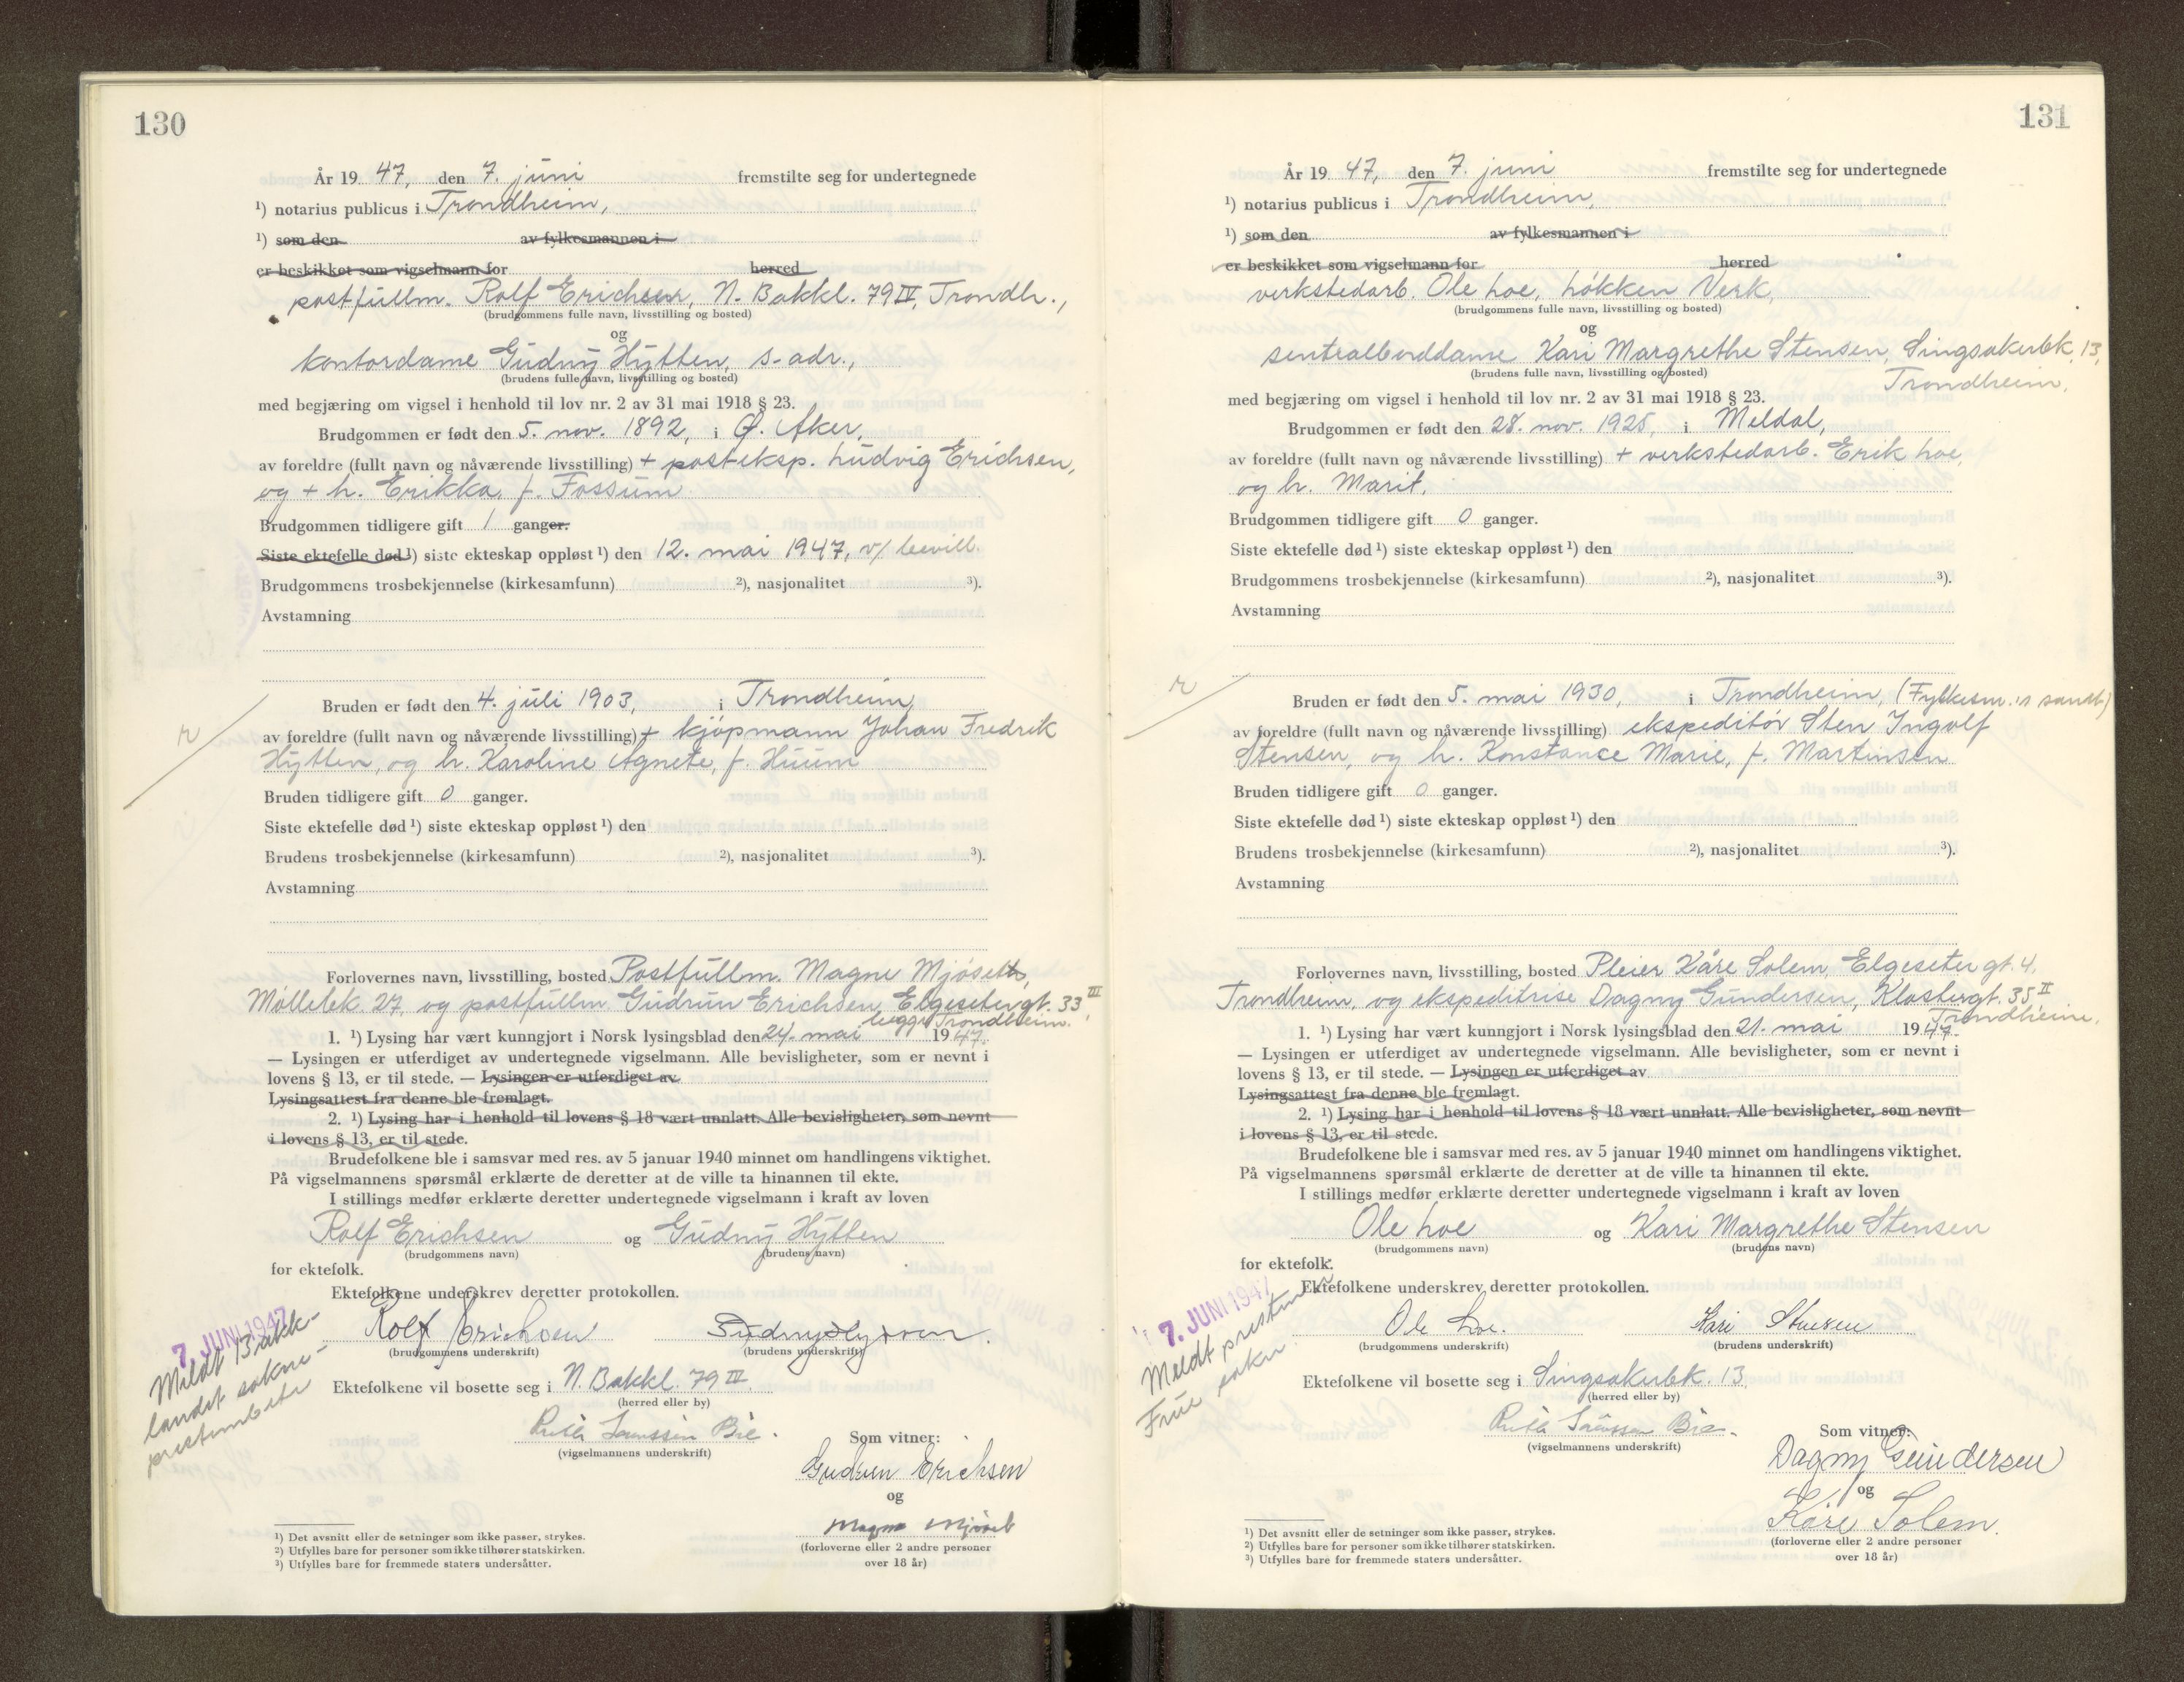 130
År 19 47, den 7. juni fremstilte seg for undertegnede
¹) notarius publicus i Trondheim,
¹) som den av fylkesmannen i
er beskikket som vigselmann for herred
postfullm. Rolf Erichsen, N. Bakkl. 79 IV, Trondh.,
(brudgommens fulle navn, livsstilling og bosted)
og
kontordame Gudny Hytten, s. adr.,
(brudens fulle navn, livsstilling og bosted)
med begjæring om vigsel i henhold til lov nr. 2 av 31 mai 1918 § 23.
Brudgommen er født den 5. nov. 1892, i Ø. Aker,
av foreldre (fullt navn og nåværende livsstilling) + posteksp. Ludvig Erichsen,
og + h. Erikka, f. Fossum
Brudgommen tidligere gift 1 ganger.
Siste ektefelle død ¹) siste ekteskap oppløst ¹) den 12. mai 1947, v/ bevill.
Brudgommens trosbekjennelse (kirkesamfunn) ²), nasjonalitet ³).
Avstamning
r
Bruden er født den 4. juli 1903, i Trondheim,
av foreldre (fullt navn og nåværende livsstilling) + kjøpmann Johan Fredrik
Hytten, og h. Karoline Agnete, f. Huum
Bruden tidligere gift 0 ganger.
Siste ektefelle død ¹) siste ekteskap oppløst ¹) den
Brudens trosbekjennelse (kirkesamfunn) ²), nasjonalitet ³).
Avstamning
Forlovernes navn, livsstilling, bosted Postfullm. Magne Mjøseth,
Møllebk 27, og postfullm. Gudrun Erichsen, Elgeseter gt. 33 III,
begge Trondheim.
1. ¹) Lysing har vært kunngjort i Norsk lysingsblad den 24. mai 1947.
— Lysingen er utferdiget av undertegnede vigselmann. Alle bevisligheter, som er nevnt i
lovens § 13, er til stede. — Lysingen er utferdiget av
Lysingsattest fra denne ble fremlagt.
2. ¹) Lysing har i henhold til lovens § 18 vært unnlatt. Alle bevisligheter, som nevnt
i lovens § 13, er til stede.
Brudefolkene ble i samsvar med res. av 5 januar 1940 minnet om handlingens viktighet.
På vigselmannens spørsmål erklærte de deretter at de ville ta hinannen til ekte.
I stillings medfør erklærte deretter undertegnede vigselmann i kraft av loven
Rolf Erichsen og Gudny Hytten
(brudgommens navn) (brudens navn)
for ektefolk.
Ektefolkene underskrev deretter protokollen.
7. JUNI 1947
Meldt Bakk-
landet sokne-
prestembete
Rolf Erichsen Gudny Hytten.
(brudgommens underskrift) (brudens underskrift)
Ektefolkene vil bosette seg i N. Bakkl. 79 IV.
(herred eller by)
(vigselmannens underskrift)
Som vitner:
Gudrun Erichsen
og
Magne Mjøseth
(forloverne eller 2 andre personer
over 18 år)
¹) Det avsnitt eller de setninger som ikke passer, strykes.
²) Utfylles bare for personer som ikke tilhører statskirken.
³) Utfylles bare for fremmede staters undersåtter.
131
År 19 47, den 7. juni fremstilte seg for undertegnede
¹) notarius publicus i Trondheim,
¹) som den av fylkesmannen i
er beskikket som vigselmann for herred
verkstedarb. Ole Loe, Løkken Verk,
(brudgommens fulle navn, livsstilling og bosted)
og
sentralborddame Kari Margrethe Stensen, Singsakerbk. 13,
Trondheim,
(brudens fulle navn, livsstilling og bosted)
med begjæring om vigsel i henhold til lov nr. 2 av 31 mai 1918 § 23.
Brudgommen er født den 28. nov. 1925, i Meldal,
av foreldre (fullt navn og nåværende livsstilling) + verkstedarb. Erik Loe,
og h. Marit.
Brudgommen tidligere gift 0 ganger.
Siste ektefelle død ¹) siste ekteskap oppløst ¹) den
Brudgommens trosbekjennelse (kirkesamfunn) ²), nasjonalitet ³).
Avstamning
r
Bruden er født den 5. mai 1930, i Trondheim, (Fylkesm.'s samt.)
av foreldre (fullt navn og nåværende livsstilling) ekspeditør Sten Ingolf
Stensen, og h. Konstance Marie, f. Martinsen
Bruden tidligere gift 0 ganger.
Siste ektefelle død ¹) siste ekteskap oppløst ¹) den
Brudens trosbekjennelse (kirkesamfunn) ²), nasjonalitet ³).
Avstamning
Forlovernes navn, livsstilling, bosted Pleier Kåre Solem, Elgeseter gt. 4,
Trondheim, og ekspeditrise Dagny Gundersen, Klostergt. 35 II
Trondheim.
1. ¹) Lysing har vært kunngjort i Norsk lysingsblad den 21. mai 1947.
— Lysingen er utferdiget av undertegnede vigselmann. Alle bevisligheter, som er nevnt i
lovens § 13, er til stede. — Lysingen er utferdiget av
Lysingsattest fra denne ble fremlagt.
2. ¹) Lysing har i henhold til lovens § 18 vært unnlatt. Alle bevisligheter, som nevnt
i lovens § 13, er til stede.
Brudefolkene ble i samsvar med res. av 5 januar 1940 minnet om handlingens viktighet.
På vigselmannens spørsmål erklærte de deretter at de ville ta hinannen til ekte.
I stillings medfør erklærte deretter undertegnede vigselmann i kraft av loven
Ole Loe og Kari Margrethe Stensen
(brudgommens navn) (brudens navn)
for ektefolk.
Ektefolkene underskrev deretter protokollen.
7. JUNI 1947
Meldt presten i
Frue sokn
Ole Loe. Kari Stensen
(brudgommens underskrift) (brudens underskrift)
Ektefolkene vil bosette seg i Singsakerbk. 13.
(herred eller by)
(vigselmannens underskrift)
Som vitner:
Dagny Gundersen
og
Kåre Solem.
(forloverne eller 2 andre personer
over 18 år)
¹) Det avsnitt eller de setninger som ikke passer, strykes.
²) Utfylles bare for personer som ikke tilhører statskirken.
³) Utfylles bare for fremmede staters undersåtter.